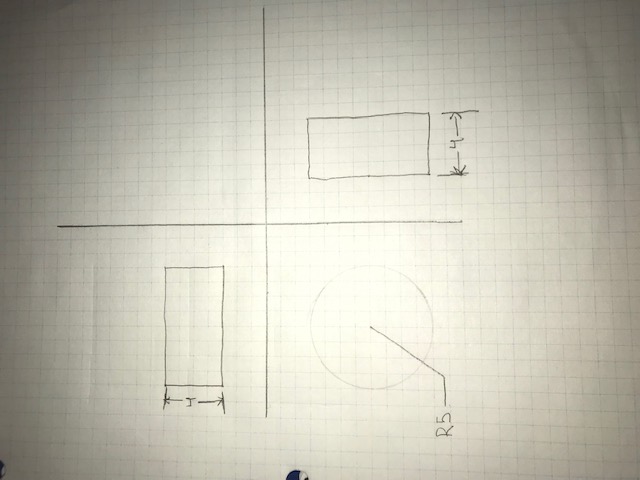 4
R5
4